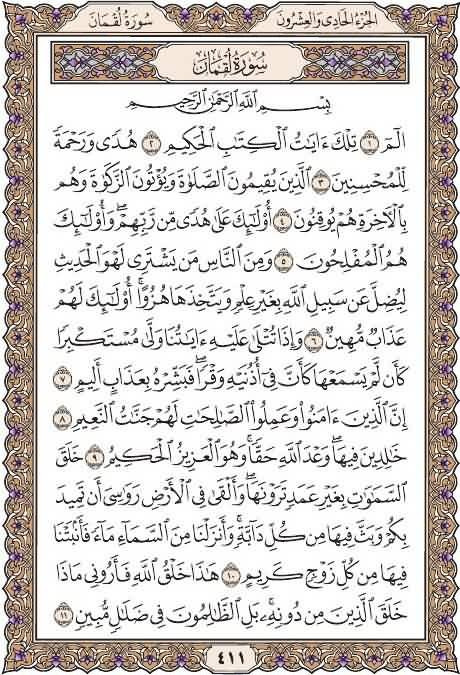 الجزء الحادي والعشرون سورة لقمان
سورة لقمان
بِسْمِ ٱللَّهِ ٱلرَّحْمَٰنِ ٱلرَّحِيمِ
الٓمٓ ١ تِلْكَ ءَايَٰتُ ٱلْكِتَٰبِ ٱلْحَكِيمِ ٢ هُدًى وَرَحْمَةً
لِّلْمُحْسِنِينَ ٣ ٱلَّذِينَ يُقِيمُونَ ٱلصَّلَوٰةَ وَيُؤْتُونَ ٱلزَّكَوٰةَ وَهُم
بِٱلْءَاخِرَةِ هُمْ يُوقِنُونَ ٤ أُو۟لَٰٓئِكَ عَلَىٰ هُدًى مِّن رَّبِّهِمْ ۖ وَأُو۟لَٰٓئِكَ
هُمُ ٱلْمُفْلِحُونَ ٥ وَمِنَ ٱلنَّاسِ مَن يَشْتَرِى لَهْوَ ٱلْحَدِيثِ
لِيُضِلَّ عَن سَبِيلِ ٱللَّهِ بِغَيْرِ عِلْمٍ وَيَتَّخِذَهَا هُزُوًا ۚ أُو۟لَٰٓئِكَ لَهُمْ
عَذَابٌ مُّهِينٌ ٦ وَإِذَا تُتْلَىٰ عَلَيْهِ ءَايَٰتُنَا وَلَّىٰ مُسْتَكْبِرًا
كَأَن لَّمْ يَسْمَعْهَا كَأَنَّ فِىٓ أُذُنَيْهِ وَقْرًا ۖ فَبَشِّرْهُ بِعَذَابٍ أَلِيمٍ ٧
إِنَّ ٱلَّذِينَ ءَامَنُوا۟ وَعَمِلُوا۟ ٱلصَّٰلِحَٰتِ لَهُمْ جَنَّٰتُ ٱلنَّعِيمِ ٨
خَٰلِدِينَ فِيهَا ۖ وَعْدَ ٱللَّهِ حَقًّا ۚ وَهُوَ ٱلْعَزِيزُ ٱلْحَكِيمُ ٩ خَلَقَ
ٱلسَّمَٰوَٰتِ بِغَيْرِ عَمَدٍ تَرَوْنَهَا ۖ وَأَلْقَىٰ فِى ٱلْأَرْضِ رَوَٰسِىَ أَن تَمِيدَ
بِكُمْ وَبَثَّ فِيهَا مِن كُلِّ دَآبَّةٍ ۚ وَأَنزَلْنَا مِنَ ٱلسَّمَآءِ مَآءً فَأَنۢبَتْنَا
فِيهَا مِن كُلِّ زَوْجٍ كَرِيمٍ ١٠ هَٰذَا خَلْقُ ٱللَّهِ فَأَرُونِى مَاذَا
خَلَقَ ٱلَّذِينَ مِن دُونِهِۦ ۚ بَلِ ٱلظَّٰلِمُونَ فِى ضَلَٰلٍ مُّبِينٍ ١١
٤١١